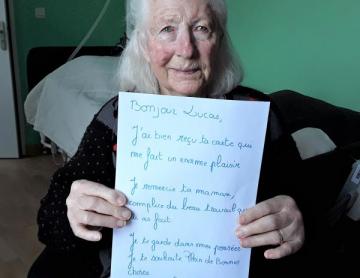 Bonjour Lucas,
J'ai bien reçu ta carte qui
me fait un enorme plaisir
Je remercie ta maman,
complice du beau travail que
tu as fait
Je te garde dans mes pensées
Je te souhaite Plein de Bonnes
choses